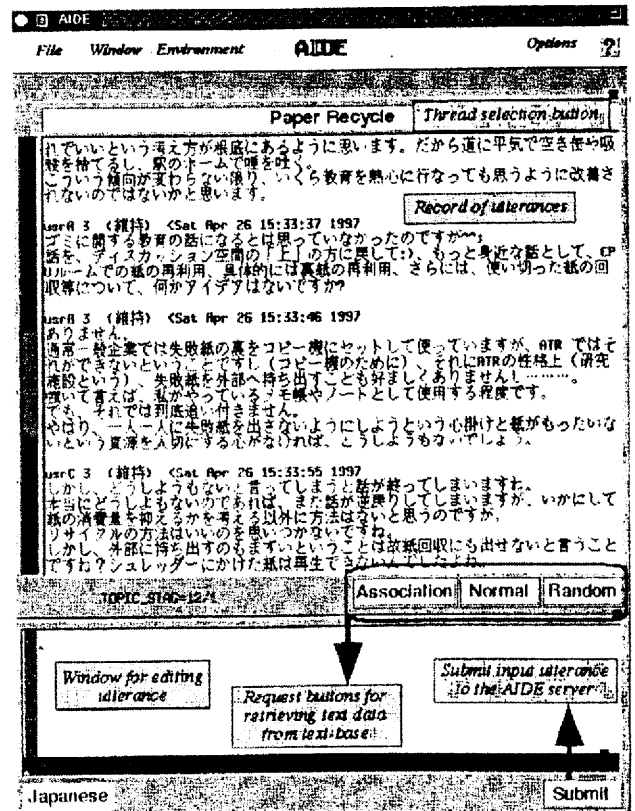 AIDE
File Window Environment AIDE Options ?
Paper Recycle Thread selection button
れでいいという考え方が根底にあるように思います。だから道に平気で空き缶や吸
殻を捨てるし、駅のホームで唾を吐く。
こういう傾向が変わらない限り、いくら教育を熱心に行なっても思うように改善さ
れないのではないかと思います。
Record of utterances
usrA 3 (維持) <Sat Apr 26 15:33:37 1997
ゴミに関する教育の話になるとは思っていなかったのですが^^;
話を、ディスカッション空間の「上」の方に戻して:)、もっと身近な話として、CP
Uルームでの紙の再利用、具体的には裏紙の再利用、さらには、使い切った紙の回
収等について、何かアイデアはないですか?
(維持) <Sat Apr 26 15:33:46 1997
ありません。
通常一般企業では失敗紙の裏をコピー機にセットして使っていますが、ATR ではそ
れができないということですし(コピー機のために)、それにATRの性格上(研究
施設という)、失敗紙を外部へ持ち出すことも好ましくありませんし………。
強いて言えば、私がやっているメモ帳やノートとして使用する程度です。
でも、それでは到底追い付きません。
やはり、一人一人に失敗紙を出さないようにしようという心掛けと紙がもったいな
いという資源を大切にする心がなければ、どうしようもないでしょう。
usrC 3 (維持) <Sat Apr 26 15:33:55 1997
しかし、どうしようもないと言ってしまうと話が終ってしまいますね。
本当にどうしよもないのであれば、また話が逆戻りしてしまいますが、いかにして
紙の消費量を抑えるかを考える以外に方法はないと思うのですが。
リサイクルの方法はいいのを思いつかないですね。
しかし、外部に持ち出すのもまずいということは故紙回収にも出せないと言うこと
ですね?シュレッダーにかけた紙は再生できないんでしたよね
TOPIC_STAG=12/1 Association Normal Random
Window for editing
utterance
Request buttons for
retrieving text data
from text-base
Submit input utterance
to the AIDE server
Japanese Submit